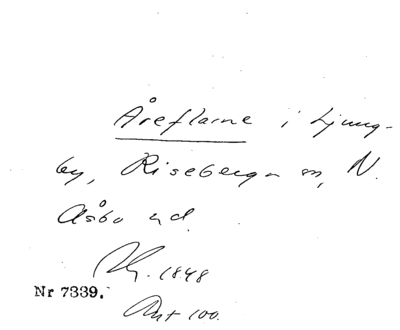 Åreflarne i Ljung-
by, Riseberga sn, N.
Åsbo hd.
1848
Nr 7339.
Ant 100.